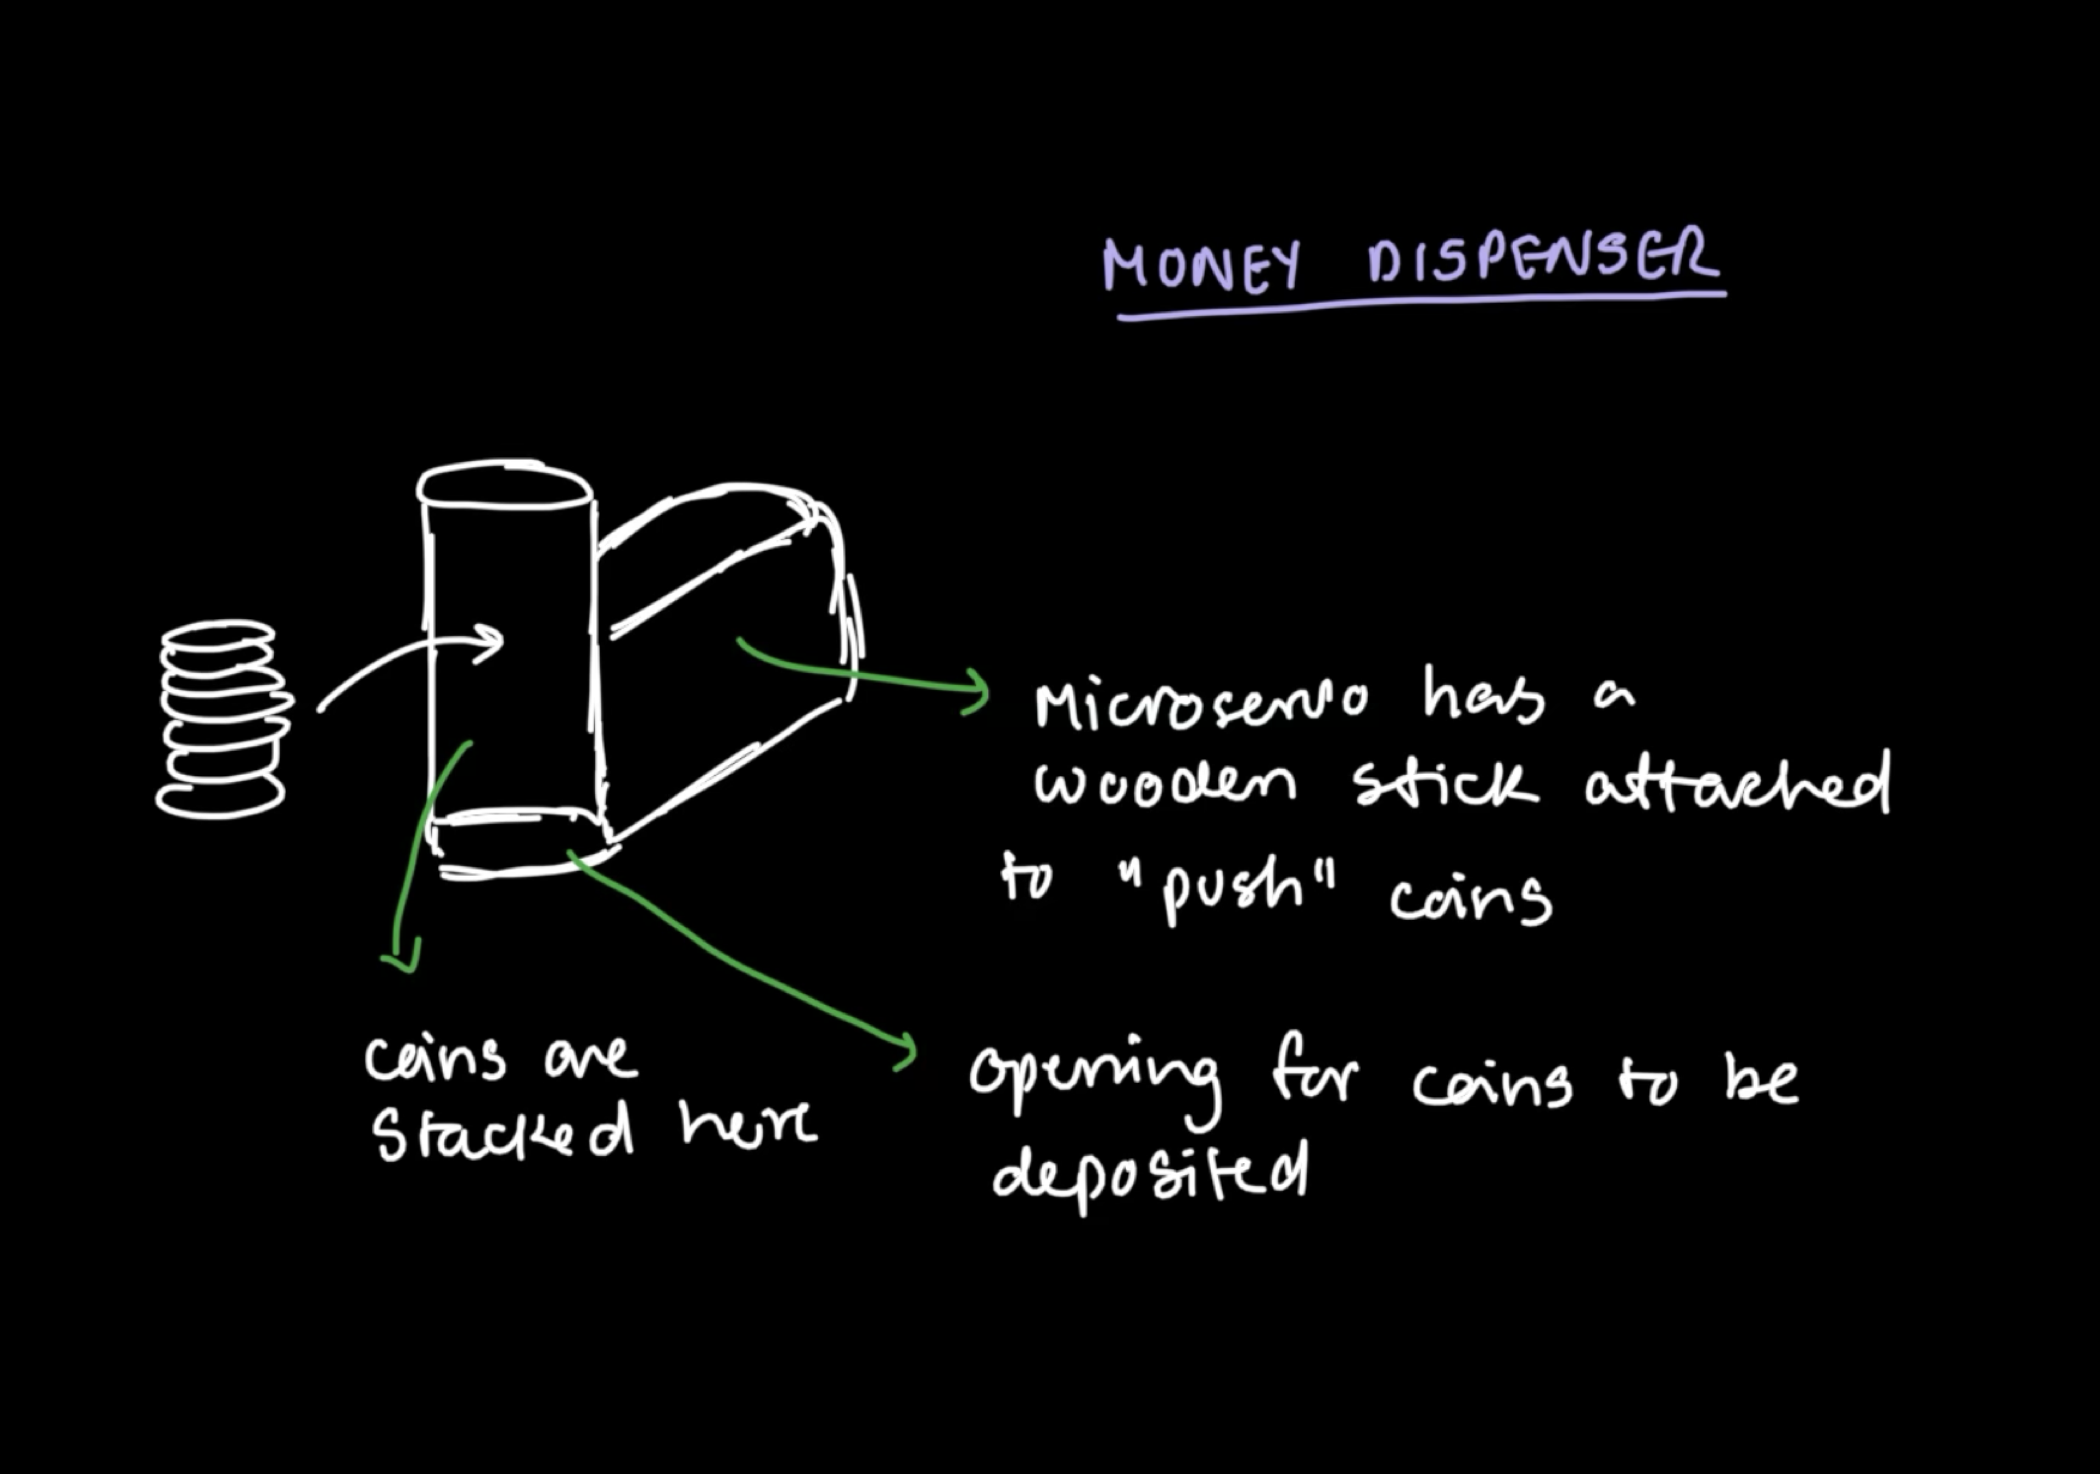 MONEY DISPENSER
Microservo has a
wooden stick attached
to "push" coins
coins are
stacked here
opening for coins to be
deposited